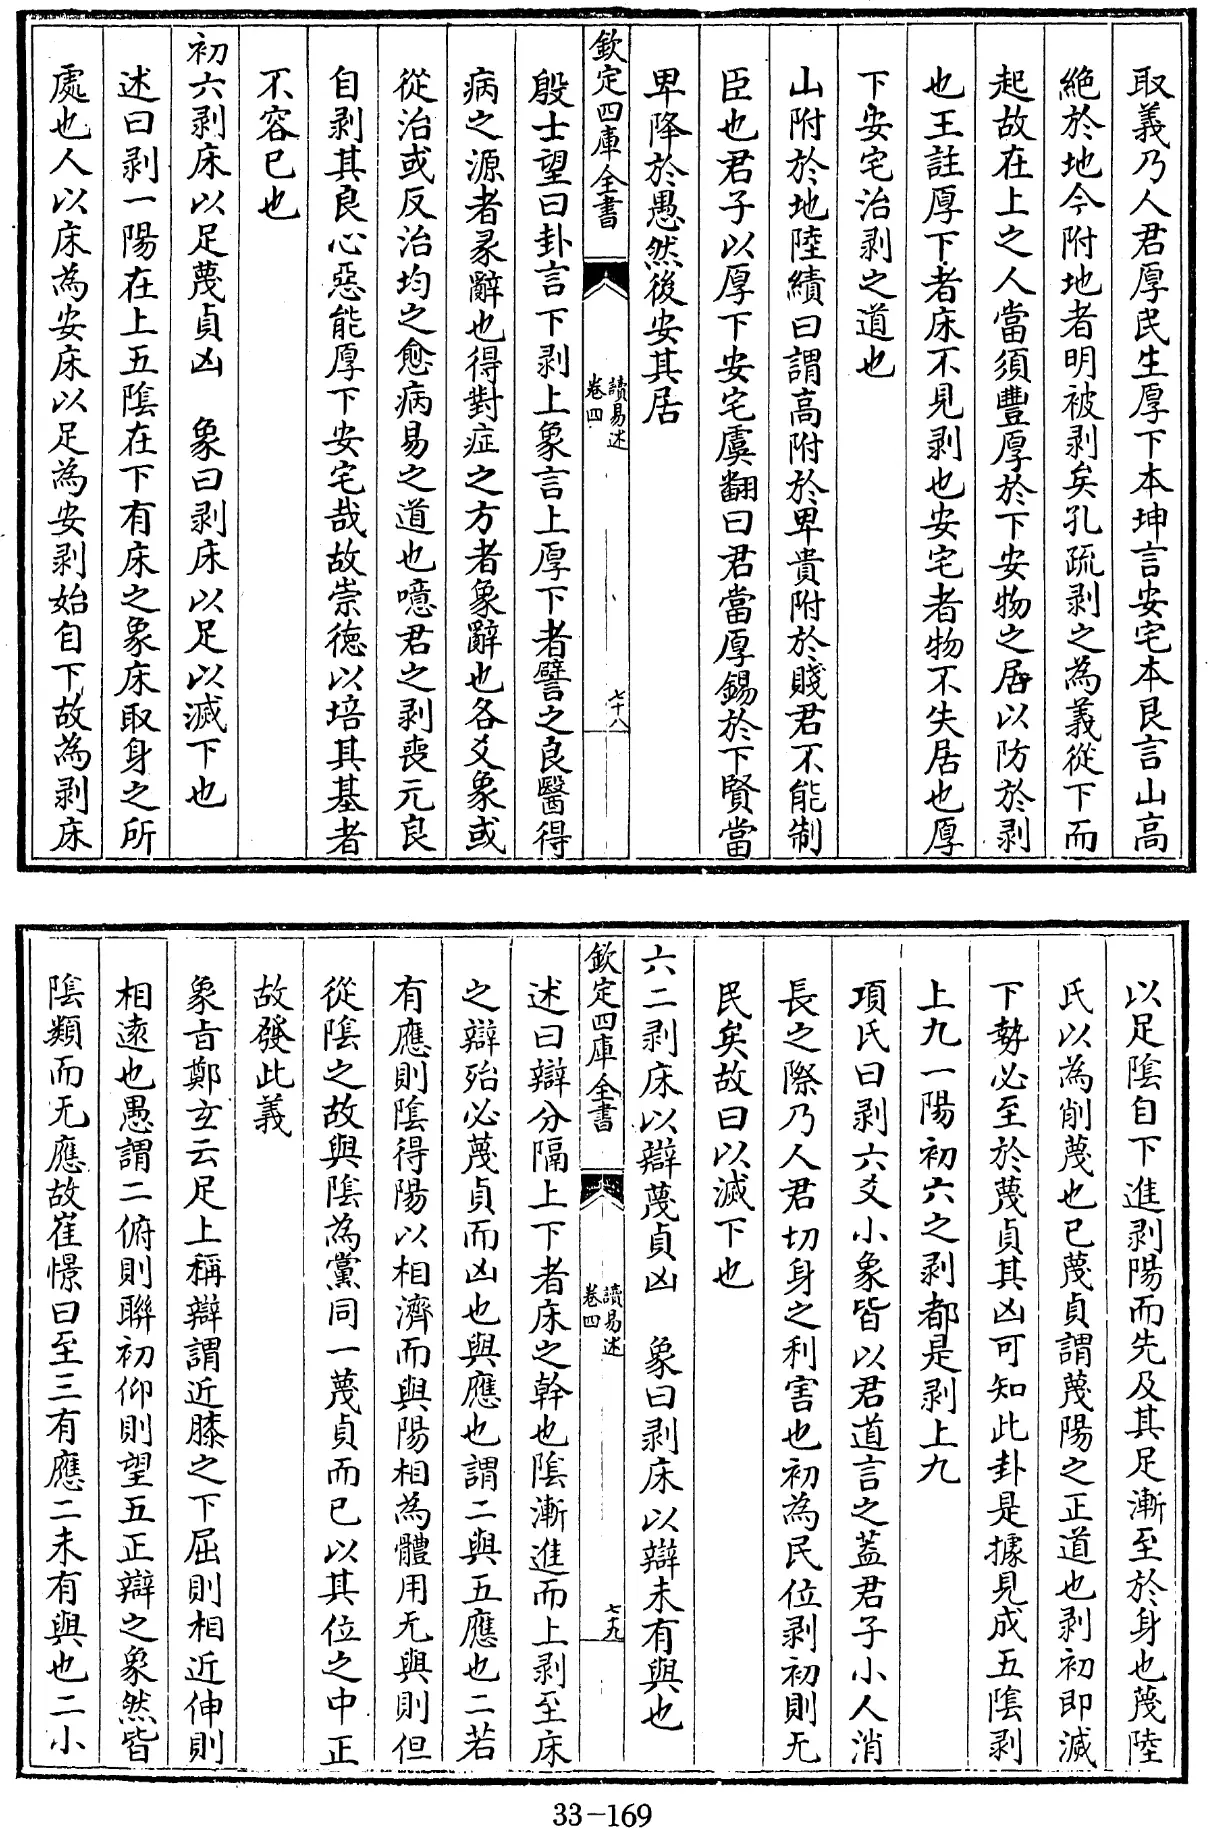 取義乃人君厚民生厚下本坤言安宅本艮言山高
絶於地今附地者明被剥矣孔疏剥之為義從下而
起故在上之人當須豐厚於下安物之居以防於剥
也王註厚下者床不見剥也安宅者物不失居也厚
下安宅治剥之道也
山附於地陸績曰謂高附於卑貴附於賤君不能制
臣也君子以厚下安宅虞翻曰君當厚錫於下賢當
卑降於愚然後安其居
欽定四庫全書
讀易述
卷四
七十八
殷士望曰卦言下剥上象言上厚下者譬之良醫得
病之源者彖辭也得對症之方者象辭也各爻象或
從治或反治均之愈病易之道也噫君之剥喪元良
自剥其良心惡能厚下安宅哉故崇德以培其基者
不容已也
初六剥床以足蔑貞凶　象曰剥床以足以滅下也
述曰剥一陽在上五陰在下有床之象床取身之所
處也人以床為安床以足為安剥始自下故為剥床
以足陰自下進剥陽而先及其足漸至於身也蔑陸
氏以為削蔑也已蔑貞謂蔑陽之正道也剥初即滅
下勢必至於蔑貞其凶可知此卦是據見成五陰剥
上九一陽初六之剥都是剥上九
項氏曰剥六爻小象皆以君道言之蓋君子小人消
長之際乃人君切身之利害也初為民位剥初則无
民矣故曰以滅下也
六二剥床以辯蔑貞凶　象曰剥床以辯未有與也
欽定四庫全書
讀易述
卷四
七十九
述曰辯分隔上下者床之幹也陰漸進而上剥至床
之辯殆必蔑貞而凶也與應也謂二與五應也二若
有應則陰得陽以相濟而與陽相為體用无與則但
從陰之故與陰為黨同一蔑貞而已以其位之中正
故發此義
象旨鄭玄云足上稱辯謂近膝之下屈則相近伸則
相遠也愚謂二俯則聯初仰則望五正辯之象然皆
陰類而无應故崔憬曰至三有應二未有與也二小
33-169